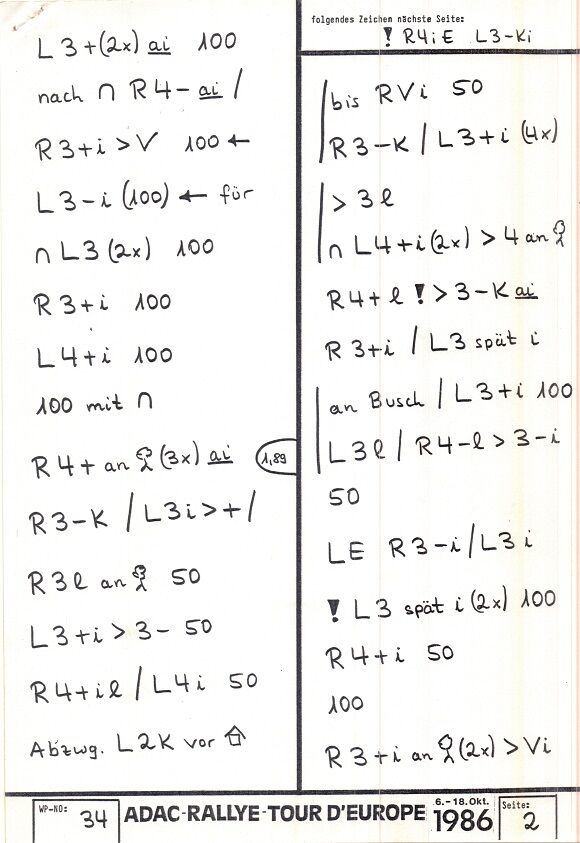 L 3+(2x) ai 100
nach ∩ R4- ai /
R 3+i > V 100 ←
L 3-i (100) ← für
∩ L3 (2x) 100
R 3+i 100
L 4+i 100
100 mit ∩
R 4+ an (3x) ai 1,89
R 3-K / L3i > + /
R 3 l an 50
L 3+i > 3- 50
R 4+il / L4i 50
Abzwg. L2K vor
folgendes Zeichen nächste Seite:
! R4iE L3-Ki
bis RVi 50
R 3-K / L3+i (4x)
> 3 l
∩ L4+i (2x) > 4 an
R 4+l ! > 3-K ai
R 3+i / L3 spät i
an Busch / L3+i 100
L 3 l / R4-l > 3-i
50
LE R3-i / L3i
! L3 spät i (2x) 100
R 4+i 50
100
R 3+i an (2x) > Vi
WP-NO: 34
ADAC-RALLYE-TOUR D'EUROPE
6.-18.Okt.
1986
Seite: 2